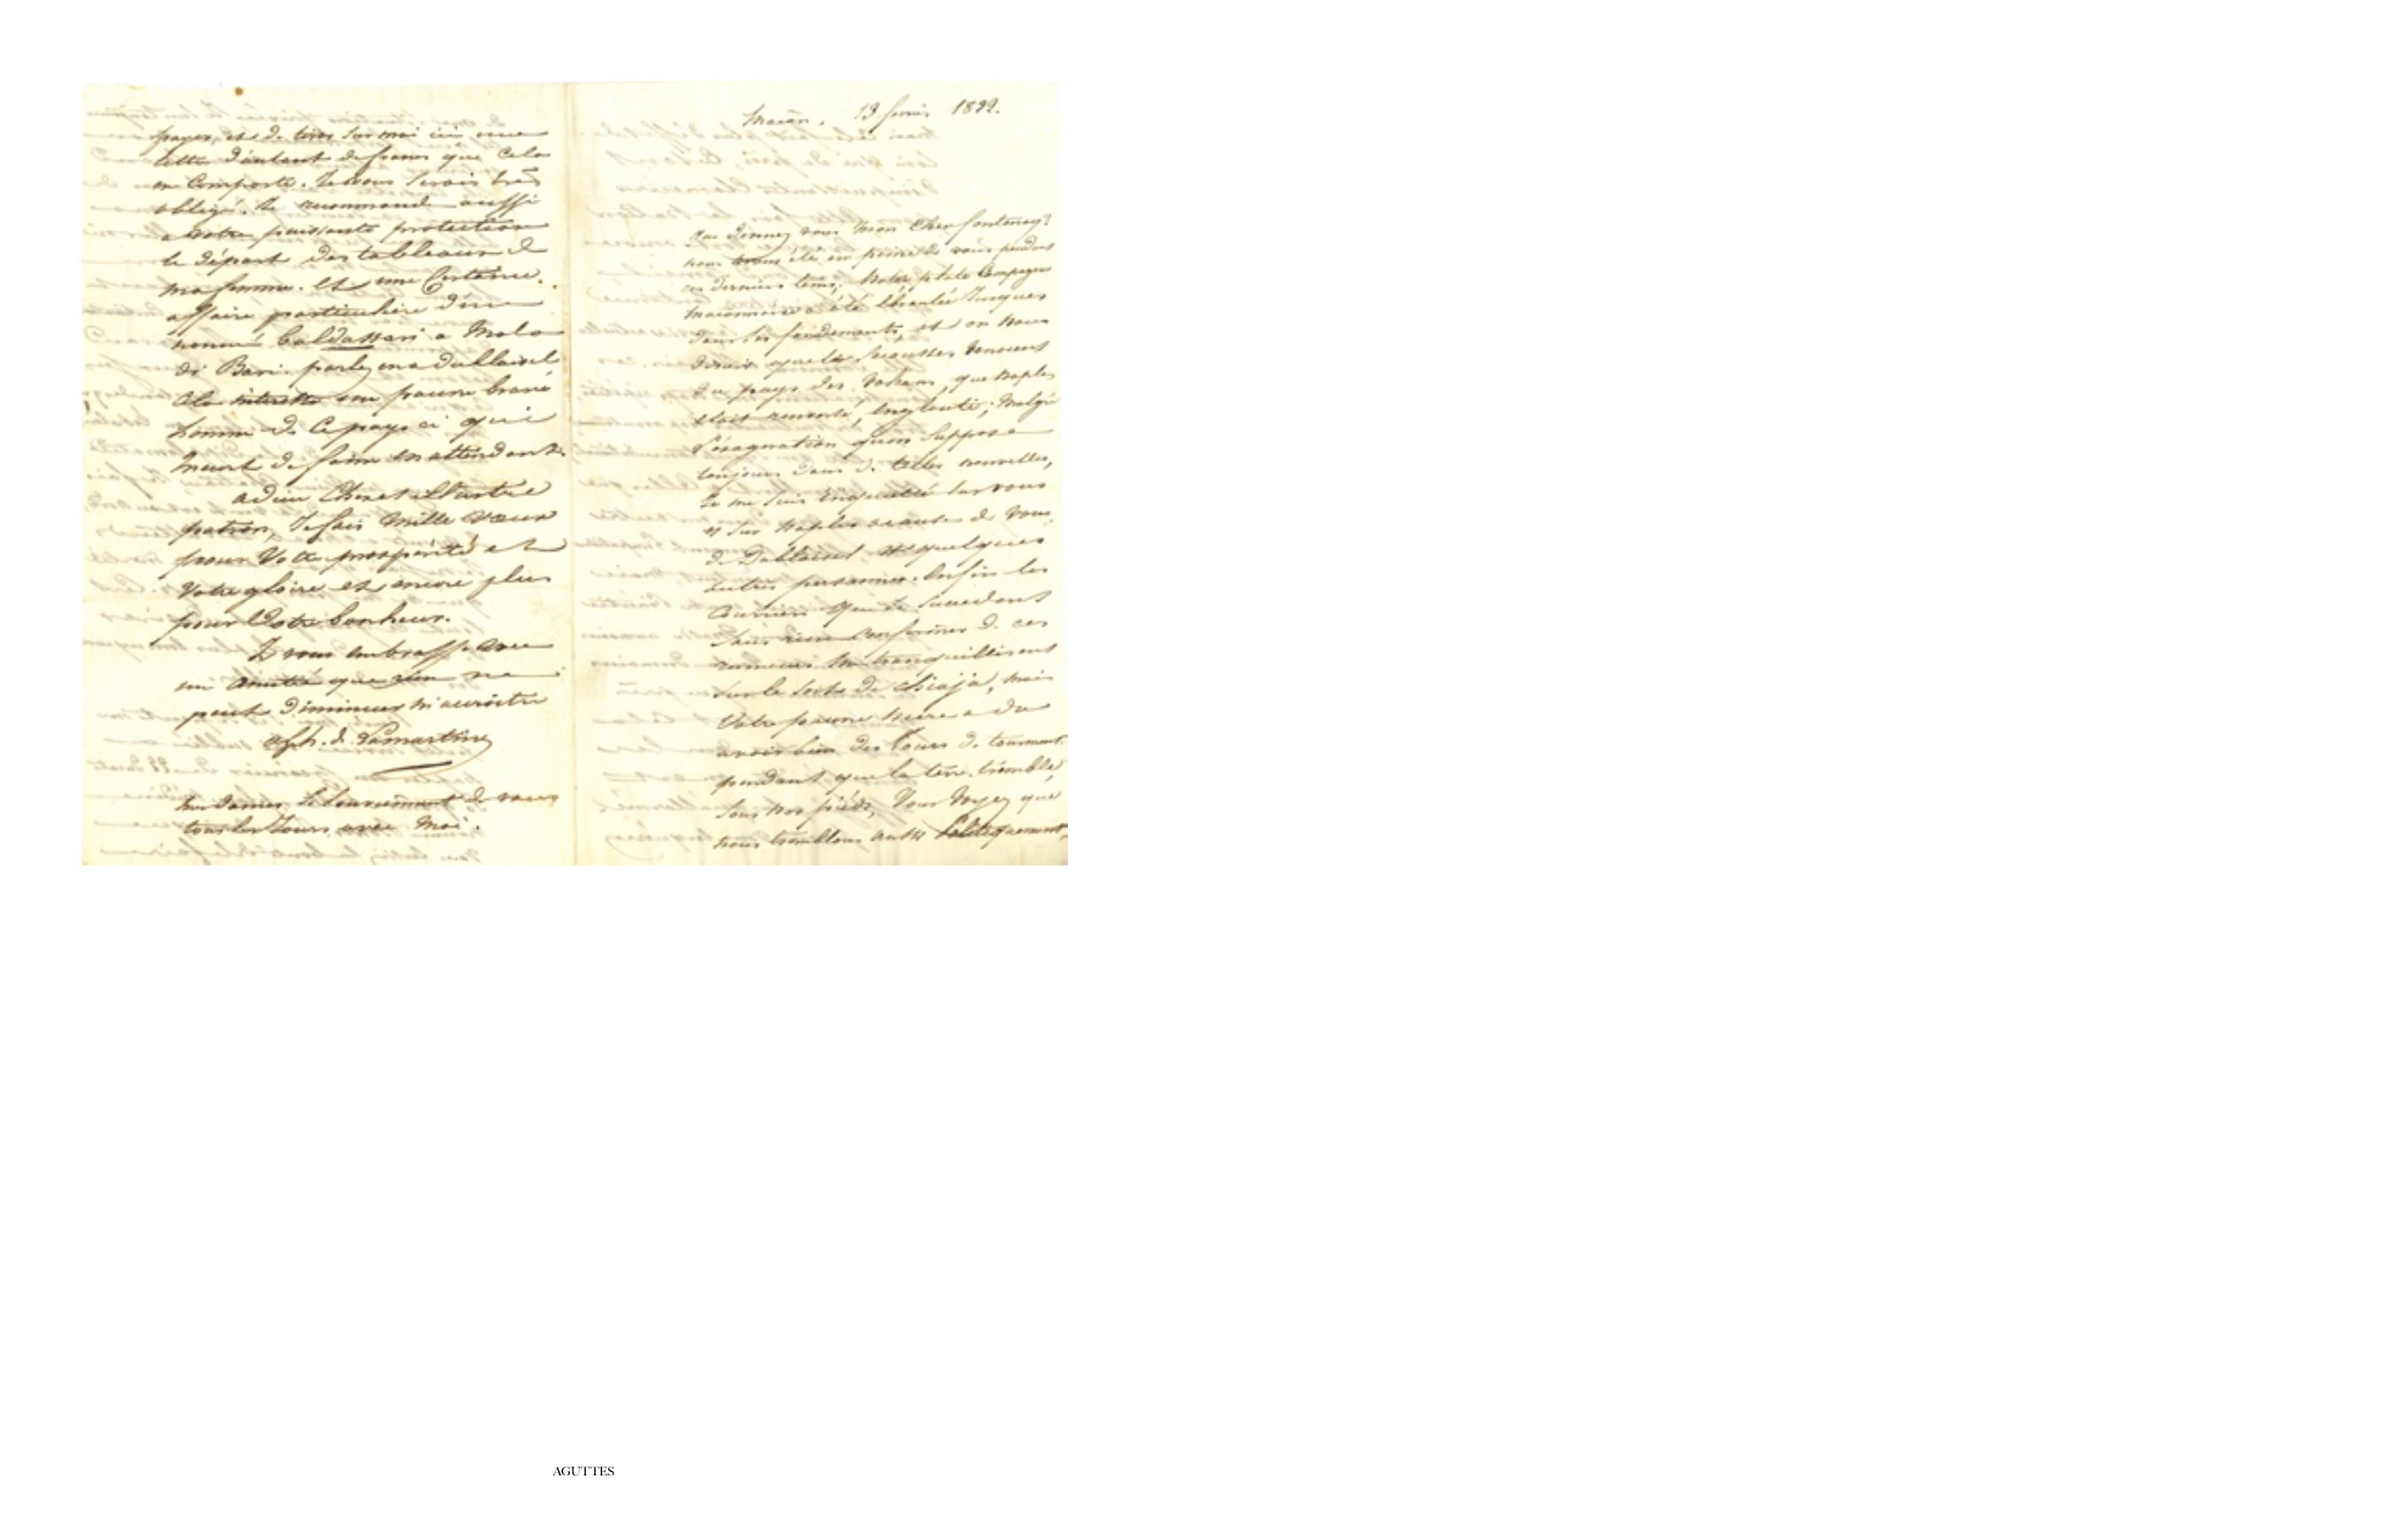 payer, et de tirer sur moi ici une
lettre d'autant de francs que cela
en comporte. Je vous serais très
obligé. Je recommande aussi
a votre puissante protection
le départ des tableaux de
ma femme. et une certaine
affaire particulière d'un
nommé Baldassari a Mola
di Bari. parlez en a Dublaisel
cela interesse un pauvre brave
homme de ce pays ci qui
meurt de faim en attendant.
adieu cher et illustre
patron, Je fais mille vœux
pour Votre prospérité et
Votre gloire et encore plus
pour Votre bonheur.
Je vous embrasse avec
une amitié que rien ne
peut diminuer ni accroitre
Alph. de Lamartine
Ces dames se souviennent de vous
tous les Jours avec moi.
Macon, 13 1822.
Que devenez vous mon Cher fontenay?
nous avons été en peine de vous pendant
ces derniers tems, Notre petite Campagne
maconnaise a été ébranlée Jusques
dans les fondements, et on nous
disait que les secousses venaient
du pays des Volcans, que Naples
etait renversé, englouti; Malgré
l'exagération qu'on suppose
toujours dans de telles nouvelles,
Je me suis inquietté sur vous
et sur Naples a cause de vous,
de Dublaisel et quelques
autres personnes. Enfin les
Couriers qui se succedent
sans rien confirmer de ces
rumeurs me tranquillisent
sur le sort de Chiaja, mais
Votre pauvre mere a du
avoir bien des Jours de tourment.
pendant que la terre tremble
sous nos pieds, Vous Voyez que
nous tremblons aussi Politiquement,
AGUTTES